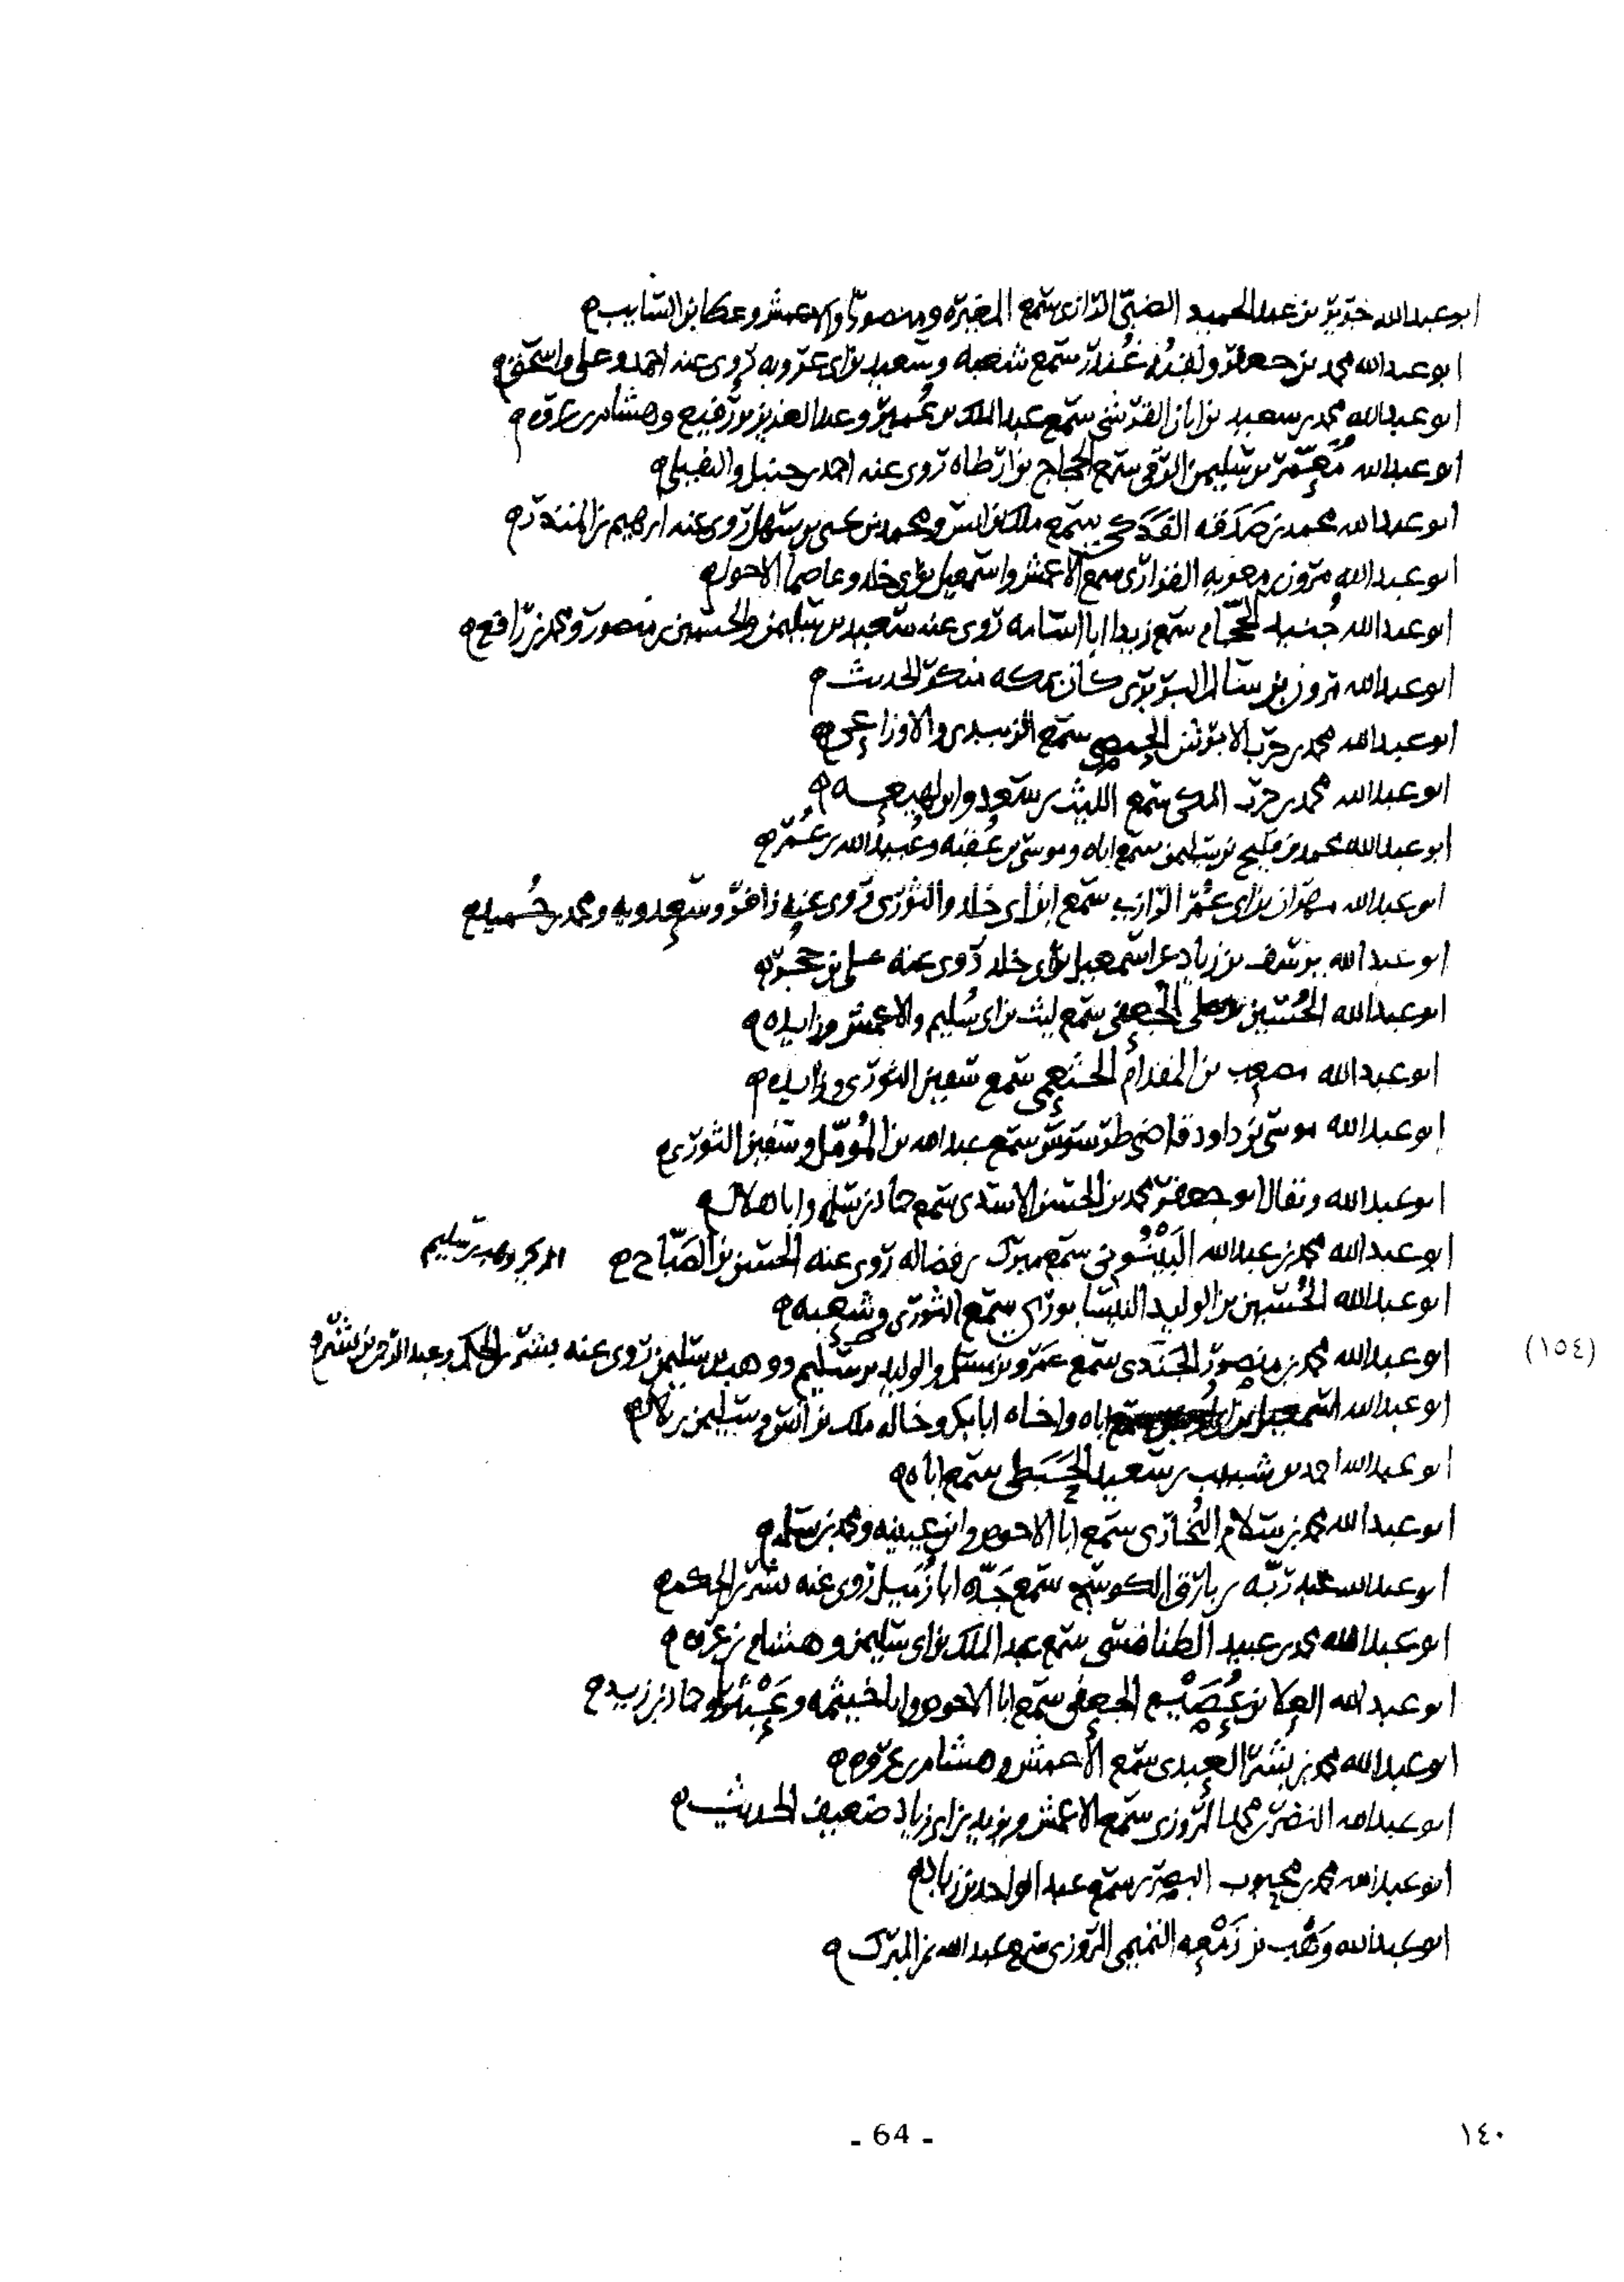 ابو عبدالله جرير بن عبد الحميد الضبي الرازي سمع المغيرة ومنصورا والاعمش وعطا بن السايب
ابو عبدالله محمد بن جعفر ولقبه غُندَر سمع شعبه وسعيد بن ابي عروبه روى عنه احمد وعلى واسحق
ابو عبدالله محمد بن سعيد بن ابان القرشي سمع عبد الملك بن عُمير وعبد العزيز بن رفيع وهشام بن عروه
ابو عبدالله مُعَمَّر بن سليمن الرقي سمع الحجاج بن ارطاه روى عنه احمد بن حنبل والنفيلي
ابو عبدالله محمد بن صَدَقه الفَدَكي سمع ملك بن انس ومحمد بن يحيى بن سهل روى عنه ابرهيم بن المنذر
ابو عبدالله مرون بن معويه الفزاري سمع الاعمش واسمعيل بن ابي خلد وعاصما الاحول
ابو عبدالله جُنيد الحجّام سمع زيدا ابا اسامه روى عنه سعيد بن سليمن والحسين بن منصور ومحمد بن رافع
ابو عبدالله مرون بن سالم كان بمكه منكر الحديث
ابو عبدالله محمد بن حرب الابرش الحمصي سمع الزبيدي والاوزاعي
ابو عبدالله محمد بن حرب المكي سمع الليث بن سعد وابن لهيعه
ابو عبدالله محمد بن فليح بن سليمن سمع اباه وموسى بن عُقبه وعُبيد الله بن عُمَر
ابو عبدالله مهران بن ابي عُمَر الرازي سمع ابن ابي خلد والثوري روى عنه زافر وسعدويه ومحمد بن حُميد
ابو عبدالله يوسف بن زياد عن اسمعيل بن ابي خلد روى عنه على بن حُجر
ابو عبدالله الحُسين بن على الجعفي سمع ليث بن ابي سُليم والاعمش وزايده
ابو عبدالله مصعب بن المقدام الخثعمي سمع سفين الثوري وزايده
ابو عبدالله موسى بن داود قاضي طرسوس سمع عبدالله بن المُومّل وسفين الثوري
ابو عبدالله ويقال ابو جعفر محمد بن الحسن الاسدي سمع حماد بن سلمه وابا هلال
ابو عبدالله محمد بن عبدالله سمع مبرك بن فضاله روى عنه الحسن بن الصَّبّاح
ابو عبدالله الحُسين بن الوليد النيسابوري سمع الثوري وشعبه
ابو عبدالله محمد بن منصور الجَنَدي سمع عَمرو بن مسلم والوليد بن سليم ووهب بن سليمن روى عنه بشر بن الحكم وعبد الرحمن بن بشر
(١٥٤)
ابو عبدالله اسمعيل بن ابي اويس سمع اباه واخاه ابا بكر وخاله ملك بن انس وسليمن بن بلال
ابو عبدالله احمد بن شبيب بن سعيد الحَبَطي سمع اباه
ابو عبدالله محمد بن سلام البُخاري سمع ابا الاحوص وابن عيينه ومحمد بن سلمه
ابو عبدالله عبد ربه بن بارق الكوسج سمع جَدّه ابا زُمَيل روى عنه بشر بن الحكم
ابو عبدالله محمد بن عبيد الطنافسي سمع عبد الملك بن ابي سليمن وهشام بن عروه
ابو عبدالله العلا بن عُصَيْم الجعفي سمع ابا الاحوص وابا خيثمه وعَبْثَر وحماد بن زيد
ابو عبدالله محمد بن بِشر العبدي سمع الاعمش وهشام بن عروه
ابو عبدالله النضر بن محمد المروزي سمع الاعمش ويزيد بن ابي زياد ضعيف الحديث
ابو عبدالله محمد بن محبوب البصري سمع عبد الواحد بن زياد
ابو عبدالله وَهْب بن زَمْعه التميمي المروزي سمع عبدالله بن المبرك
- 64 -
١٤٠